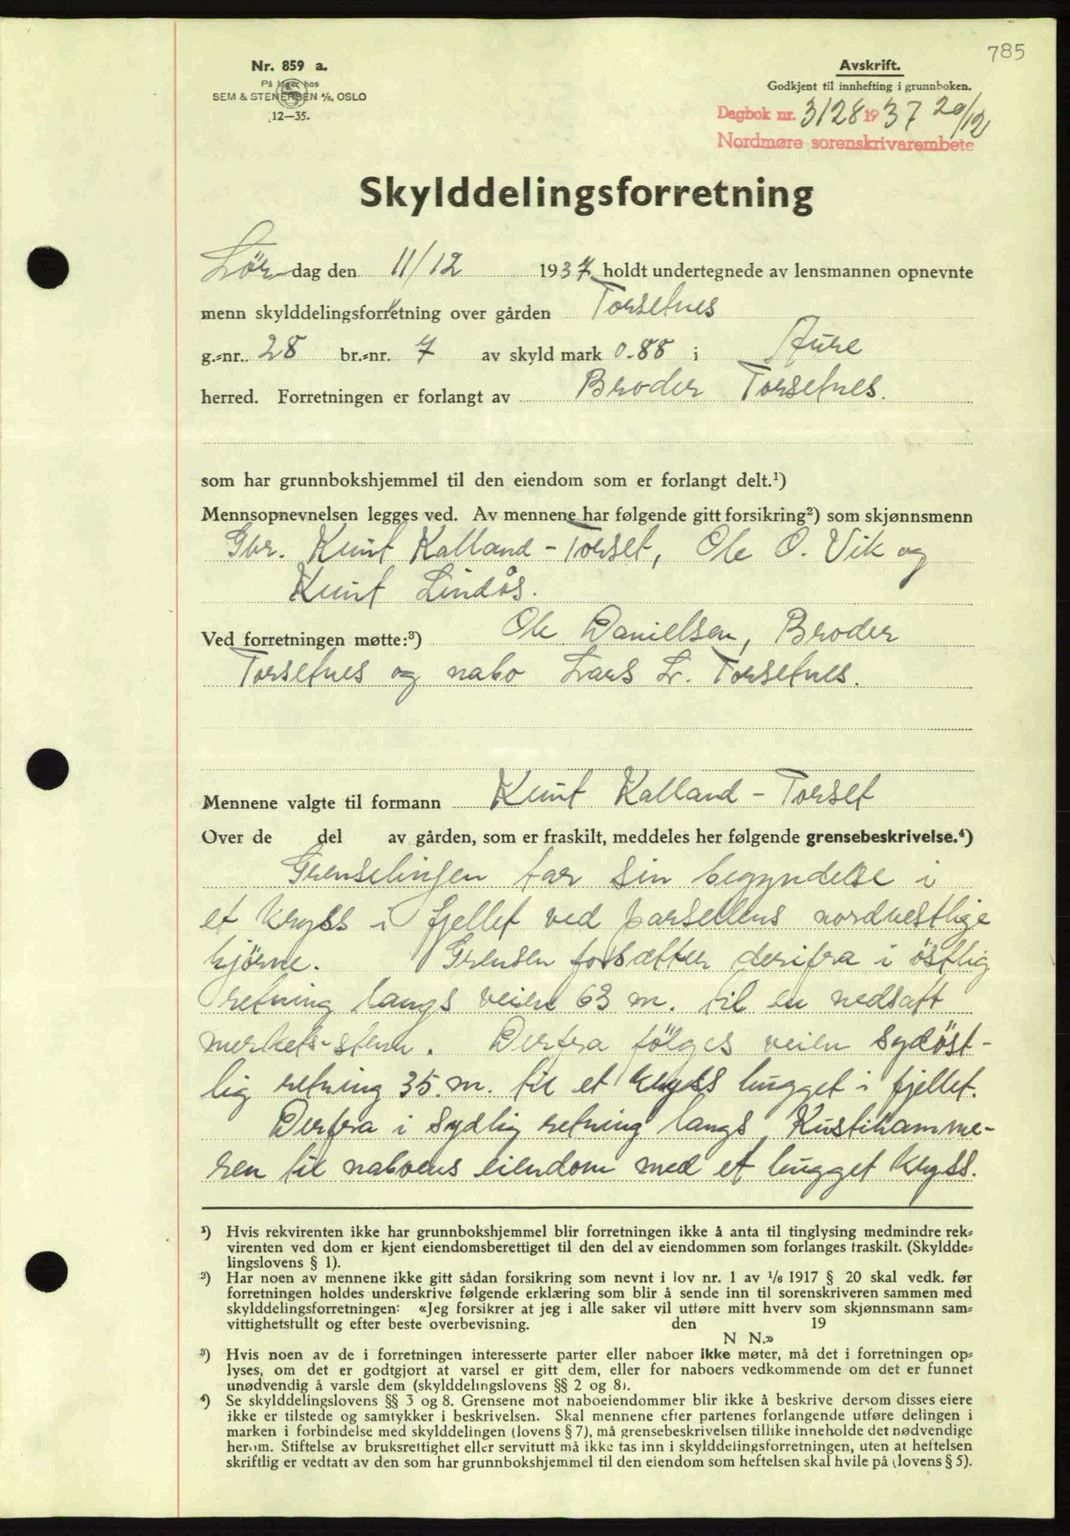 785
Nr. 859 a.
På lager hos
SEM & STENERSEN A/S, OSLO
12—35.
Avskrift.
Godkjent til innhefting i grunnboken.
Dagbok nr. 3128 1937 20/12
Nordmøre sorenskrivarembete
Skylddelingsforretning
Lördag den 11/12 1937 holdt undertegnede av lensmannen opnevnte
menn skylddelingsforretning over gården Torsetnes
g.-nr. 28 br.-nr. 7 av skyld mark 0.88 i Aure
herred. Forretningen er forlangt av Broder Torsetnes.
som har grunnbokshjemmel til den eiendom som er forlangt delt.¹)
Mennsopnevnelsen legges ved. Av mennene har følgende gitt forsikring²) som skjønnsmenn
Gbr. Knut Kalland - Torset, Ole O. Vik og
Knut Lindås.
Ved forretningen møtte:³) Ole Danielsen, Broder
Torsetnes og nabo Lars L. Torsetnes.
Mennene valgte til formann Knut Kalland - Torset
Over de del av gården, som er fraskilt, meddeles her følgende grensebeskrivelse.⁴)
Grenselinjen tar sin begyndelse i
et kryss i fjellet ved parsellens nordvestlige
hjörne. Grensen forsætter derifra i östlig
retning langs veien 63 m. til en nedsatt
merkets-stenn. Derfra fölges veien sydöst-
lig retning 35 m. til et kryss hugget i fjellet.
Derfra i sydlig retning langs Kustihamme-
ren til naboens eiendom med et hugget kryss.
¹) Hvis rekvirenten ikke har grunnbokshjemmel blir forretningen ikke å anta til tinglysing medmindre rek-
virenten ved dom er kjent eiendomsberettiget til den del av eiendommen som forlanges fraskilt. (Skyldde-
lingslovens § 1).
²) Har noen av mennene ikke gitt sådan forsikring som nevnt i lov nr. 1 av 1/6 1917 § 20 skal vedk. før
forretningen holdes underskrive følgende erklæring som blir å sende inn til sorenskriveren sammen med
skylddelingsforretningen: «Jeg forsikrer at jeg i alle saker vil utføre mitt hverv som skjønnsmann sam-
vittighetsfullt og efter beste overbevisning. den 19
N N.»
³) Hvis noen av de i forretningen interesserte parter eller naboer ikke møter, må det i forretningen op-
lyses, om det er godtgjort at varsel er gitt dem, eller for naboers vedkommende om det er funnet
unødvendig å varsle dem (skylddelingslovens §§ 2 og 8).
⁴) Se skylddelingslovens §§ 3 og 8. Grensene mot naboeiendommer blir ikke å beskrive dersom disses eiere
ikke er tilstede og samtykker i beskrivelsen. Skal mennene efter partenes forlangende utføre delingen i
marken i forbindelse med skylddelingen (lovens § 7), må grensebeskrivelsen tillike inneholde det nødvendige
herom. Stiftelse av bruksrettighet eller servitutt må ikke tas inn i skylddelingsforretningen, uten at heftelsen
skriftlig er vedtatt av den som har grunnbokshjemmel til den eiendom som heftelsen skal hvile på (lovens § 5).